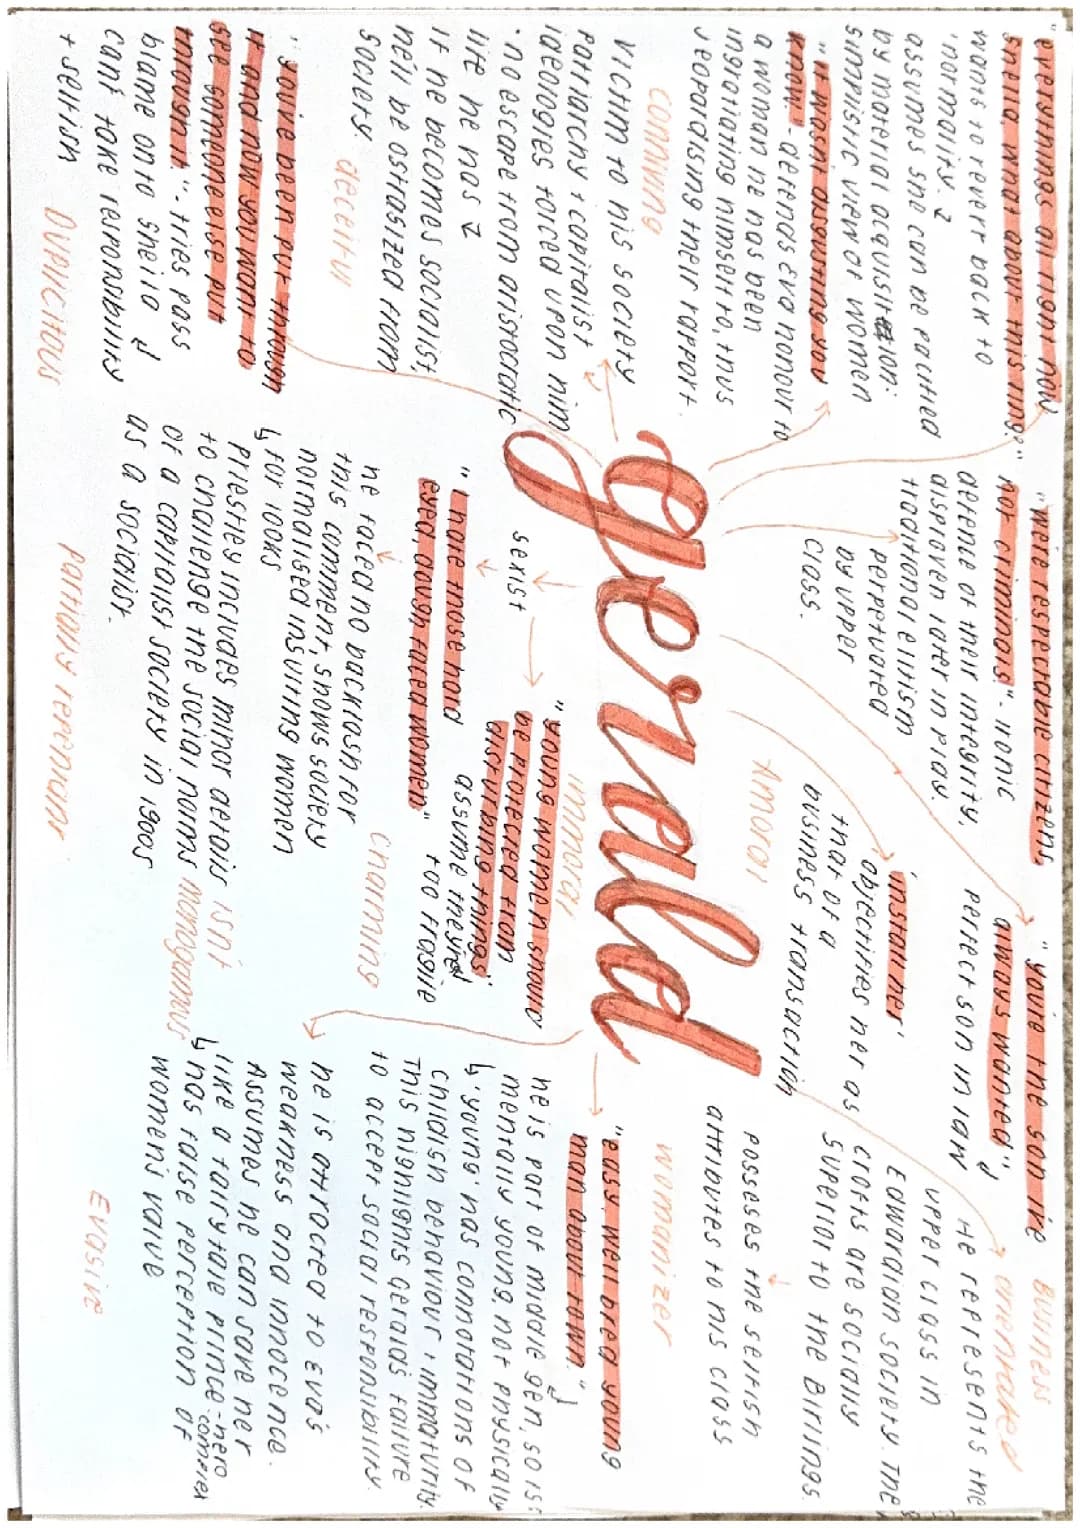 "everythings alright now
sheila, what about this ring?"
wants to revert back to
'normality' ↓
assumes she can be pacified
by material acquisition:
simplistic view of women
"it wasn't disgusting you
know" - defends Eva honour to
a woman he has been
ingratiating himself to, thus
jeopardising their rapport.
conniving
victim to his society
patriarchy + capitalist
ideologies forced upon him
• no escape from aristocratic
life he has ↓
If he becomes socialist,
he'll be ostrasized from
society
deceitful
"you've been put through
it and now you want to
see someone else put
through it" - tries pass
blame onto sheila ↓
can't take responsibility
+ selfish
DUPLICITOUS
"We're respectable citizens,
not criminals" - ironic
defence of their integrity,
disproven later in play.
traditional elitism
perpetuated
by upper
class.
gerald
sexist
"I hate those hard
eyed, dough faced women"
he faced no backlash for
this comment, shows society
normalised insulting women
↳ for looks
priestley includes minor details
to challenge the social norms
of a capitalist society in 1900s
as a socialist.
partially repentant
Amoral
'install her'
objectifies her as
that of a
business transaction
immoral
"young women should
be protected from
disturbing things"
assume they're
too fragile
charming
isn't
monogamus
"you're the son i've
always wanted" ↓
perfect son in law
BUSINESS
orientated
He represents the
upper class in
Edwardian society. The
crofts are socially
superior to the Birlings.
posseses the selfish
attributes to his class
womanizer
"easy well bred young
man about-town." ↓
he is part of middle gen, so is
mentally young, not physically
↳ 'young' has connotations of
childish behaviour + immaturity.
This highlights geralds failure
to accept social responsibility.
he is attracted to Eva's
weakness and innocence.
Assumes he can save her
like a fairytale prince - hero complex
↳ has false perception of
womens value
Evasive